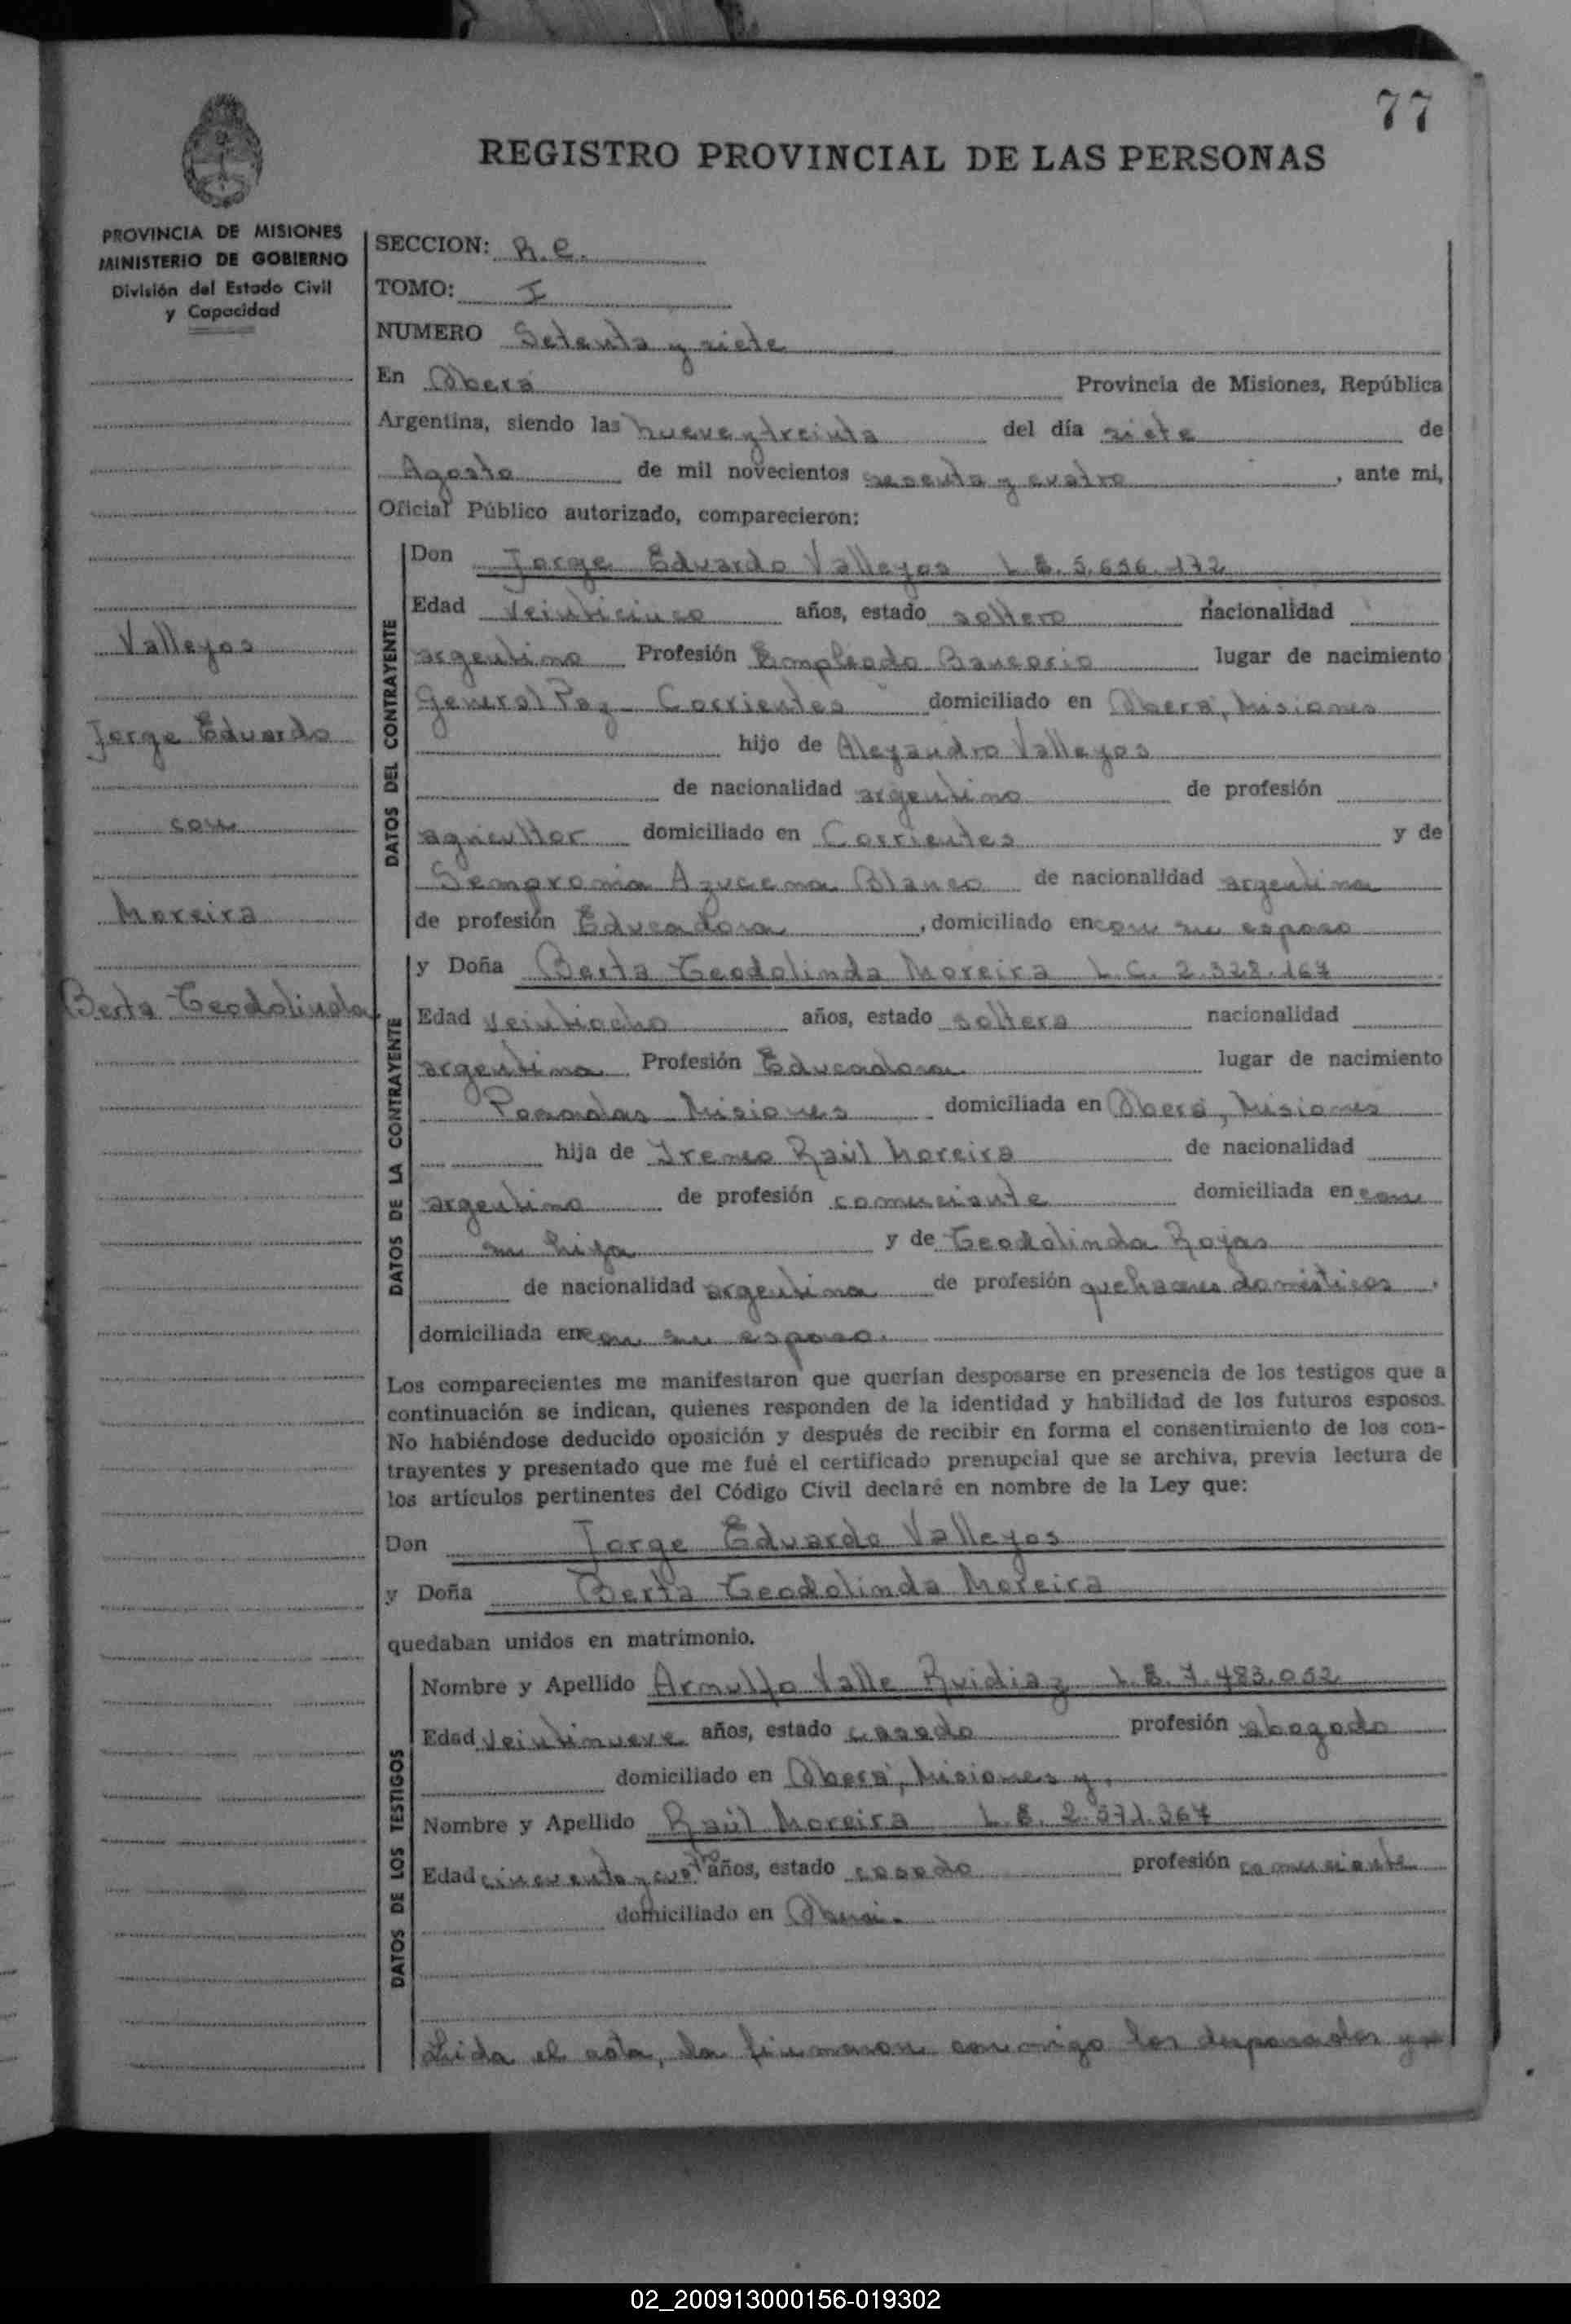 77
REGISTRO PROVINCIAL DE LAS PERSONAS
PROVINCIA DE MISIONES
MINISTERIO DE GOBIERNO
División del Estado Civil
y Capacidad
Valleyos
Jorge Eduardo
con
Moreira
Berta Teodolinda
SECCION: R.C.
TOMO: I
NUMERO Setenta y siete
En Oberá Provincia de Misiones, República
Argentina, siendo las nueve y treinta del día siete de
Agosto de mil novecientos sesenta y cuatro, ante mi,
Oficial Público autorizado, comparecieron:
DATOS DEL CONTRAYENTE
Don Jorge Eduardo Valleyos L.E. 5.656.172
Edad veinticinco años, estado soltero nacionalidad
argentino Profesión Empleado Bancario lugar de nacimiento
General Paz - Corrientes domiciliado en Oberá, Misiones
hijo de Aleyandro Valleyos
de nacionalidad argentino de profesión
agricultor domiciliado en Corrientes y de
Sempronia Azucena Blanco de nacionalidad argentina
de profesión Educadora, domiciliado en con su esposo
DATOS DE LA CONTRAYENTE
y Doña Berta Teodolinda Moreira L.C. 2.328.167
Edad veintiocho años, estado soltera nacionalidad
argentina Profesión Educadora lugar de nacimiento
Posadas Misiones domiciliada en Oberá, Misiones
hija de Ireneo Raúl Moreira de nacionalidad
argentino de profesión comerciante domiciliada en con
su hija y de Teodolinda Rojas
de nacionalidad argentina de profesión quehaceres domésticos.
domiciliada en con su esposo.
Los comparecientes me manifestaron que querían desposarse en presencia de los testigos que a
continuación se indican, quienes responden de la identidad y habilidad de los futuros esposos.
No habiéndose deducido oposición y después de recibir en forma el consentimiento de los con-
trayentes y presentado que me fué el certificado prenupcial que se archiva, previa lectura de
los artículos pertinentes del Código Civil declaré en nombre de la Ley que:
Don Jorge Eduardo Valleyos
y Doña Berta Teodolinda Moreira
quedaban unidos en matrimonio.
DATOS DE LOS TESTIGOS
Nombre y Apellido Arnulfo Valle Ruidiaz L.E. 7.483.052
Edad veintinueve años, estado casado profesión abogado
domiciliado en Oberá, Misiones y.
Nombre y Apellido Raúl Moreira L.E. 2.372.367
Edad cincuenta y cuatro años, estado casado profesión comerciante
domiciliado en Oberá.
Leida el acta, la firmaron conmigo los desposados y
02_200913000156-019302